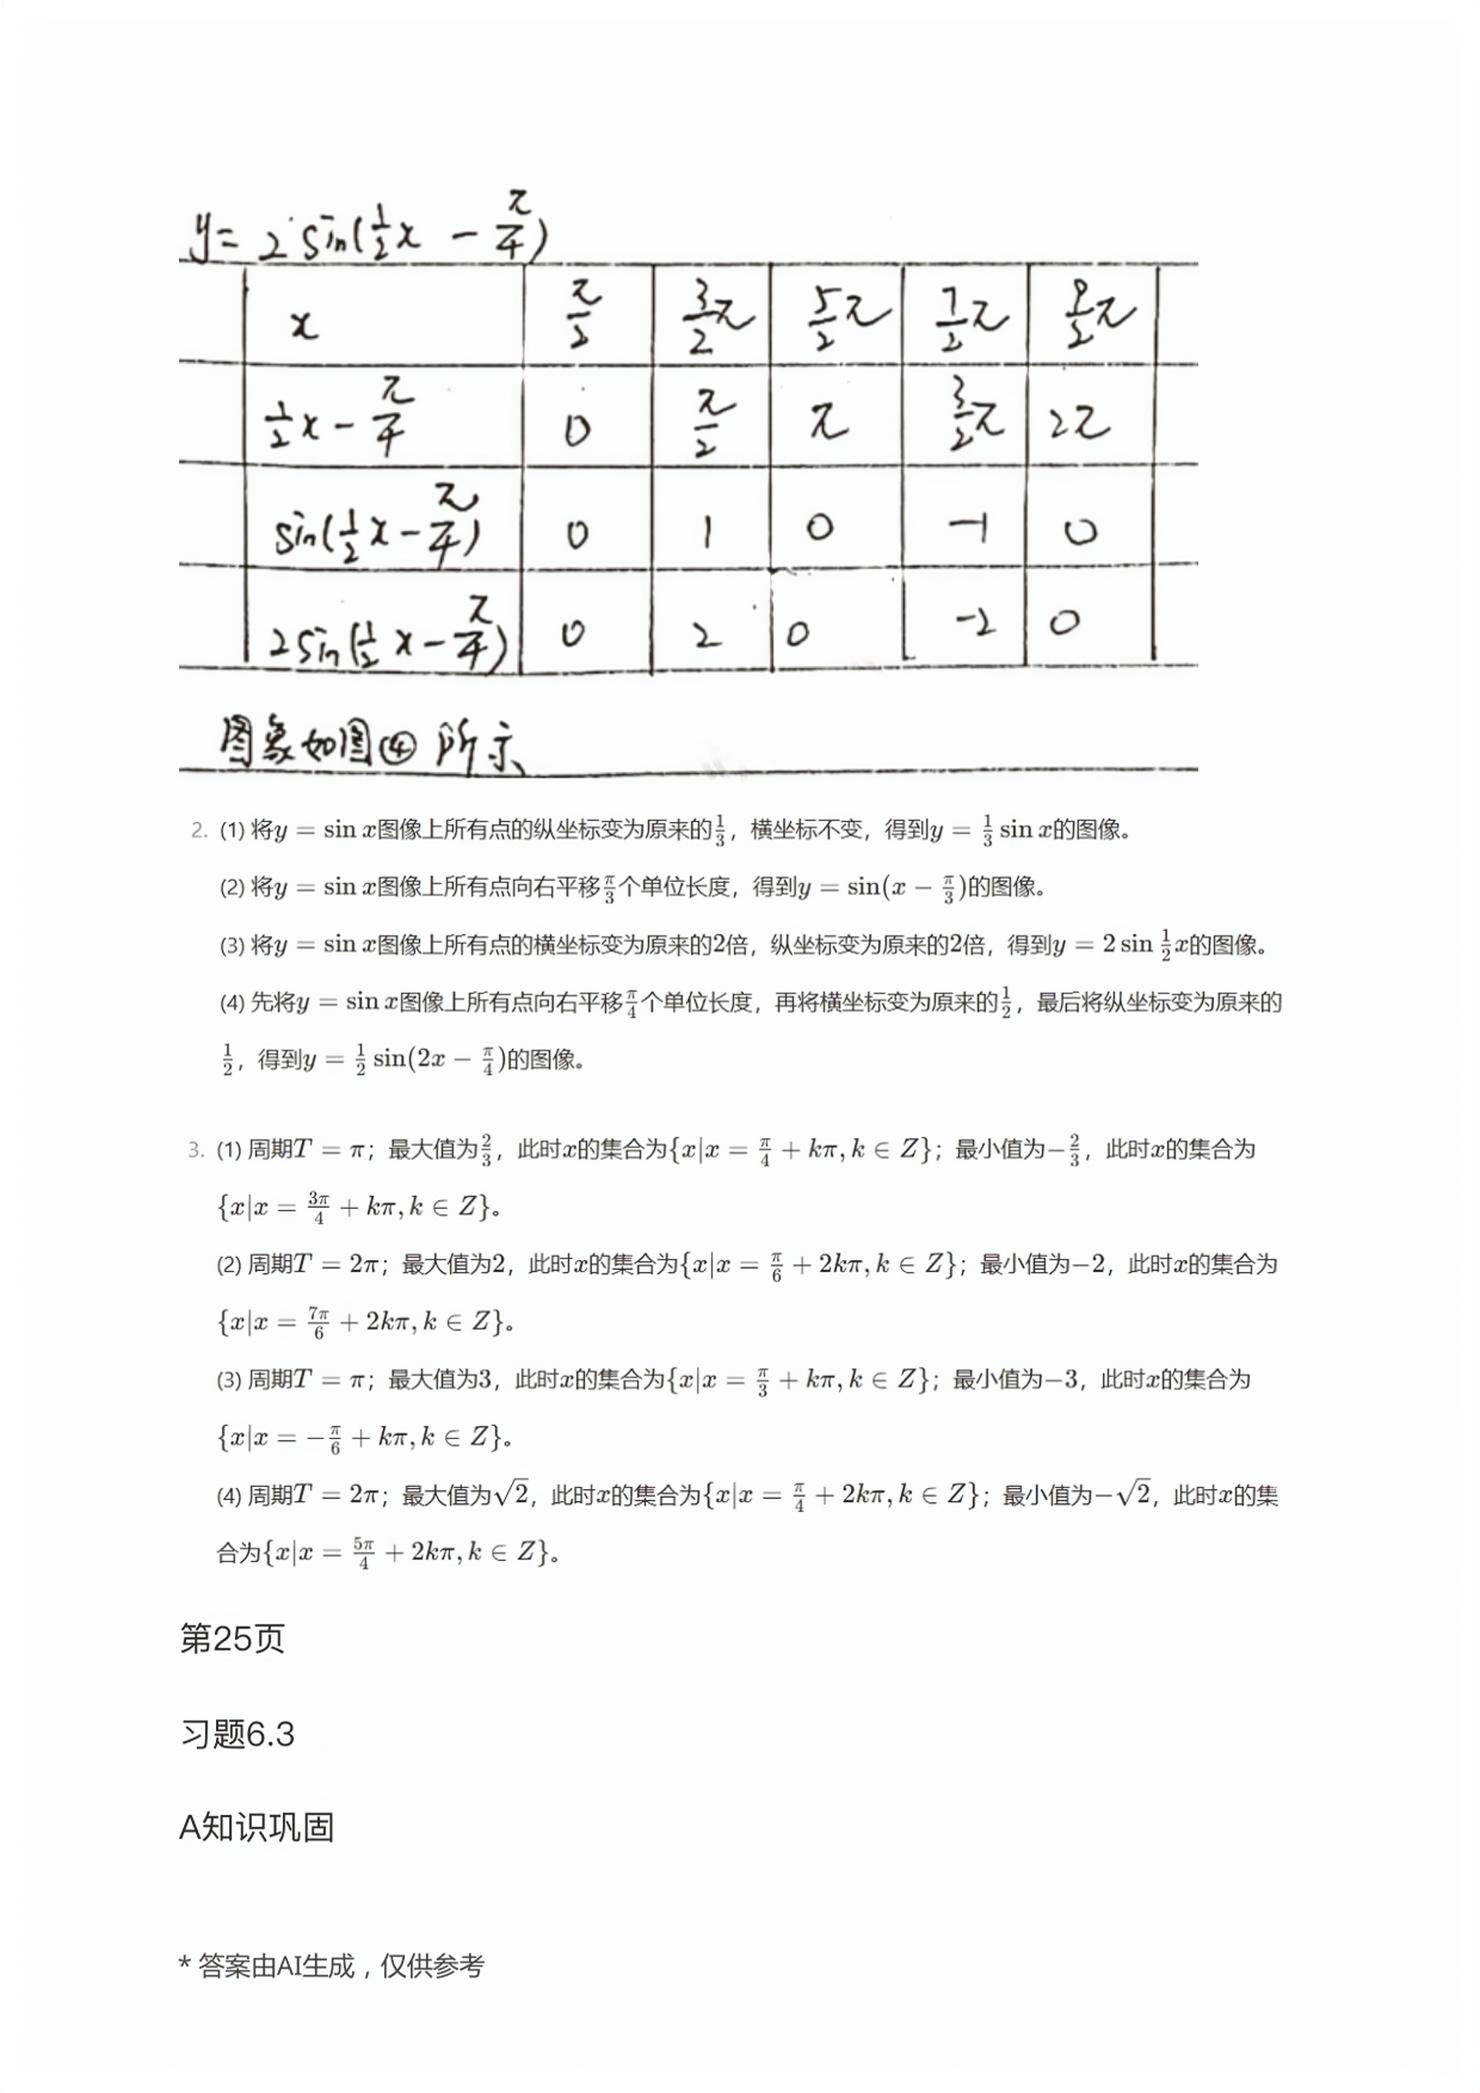 y = 2sin(½x − π/4)
x π/2 3/2π 5/2π 7/2π 9/2π
½x − π/4 0 π/2 π 3/2π 2π
sin(½x − π/4) 0 1 0 −1 0
2sin(½x − π/4) 0 2 0 −2 0
图象如图④所示
2. (1) 将y = sin x图像上所有点的纵坐标变为原来的1/3，横坐标不变，得到y = 1/3 sin x的图像。
(2) 将y = sin x图像上所有点向右平移π/3个单位长度，得到y = sin(x − π/3)的图像。
(3) 将y = sin x图像上所有点的横坐标变为原来的2倍，纵坐标变为原来的2倍，得到y = 2 sin 1/2 x的图像。
(4) 先将y = sin x图像上所有点向右平移π/4个单位长度，再将横坐标变为原来的1/2，最后将纵坐标变为原来的
1/2，得到y = 1/2 sin(2x − π/4)的图像。
3. (1) 周期T = π；最大值为2/3，此时x的集合为{x|x = π/4 + kπ, k ∈ Z}；最小值为−2/3，此时x的集合为
{x|x = 3π/4 + kπ, k ∈ Z}。
(2) 周期T = 2π；最大值为2，此时x的集合为{x|x = π/6 + 2kπ, k ∈ Z}；最小值为−2，此时x的集合为
{x|x = 7π/6 + 2kπ, k ∈ Z}。
(3) 周期T = π；最大值为3，此时x的集合为{x|x = π/3 + kπ, k ∈ Z}；最小值为−3，此时x的集合为
{x|x = −π/6 + kπ, k ∈ Z}。
(4) 周期T = 2π；最大值为√2，此时x的集合为{x|x = π/4 + 2kπ, k ∈ Z}；最小值为−√2，此时x的集
合为{x|x = 5π/4 + 2kπ, k ∈ Z}。
第25页
习题6.3
A知识巩固
* 答案由AI生成，仅供参考